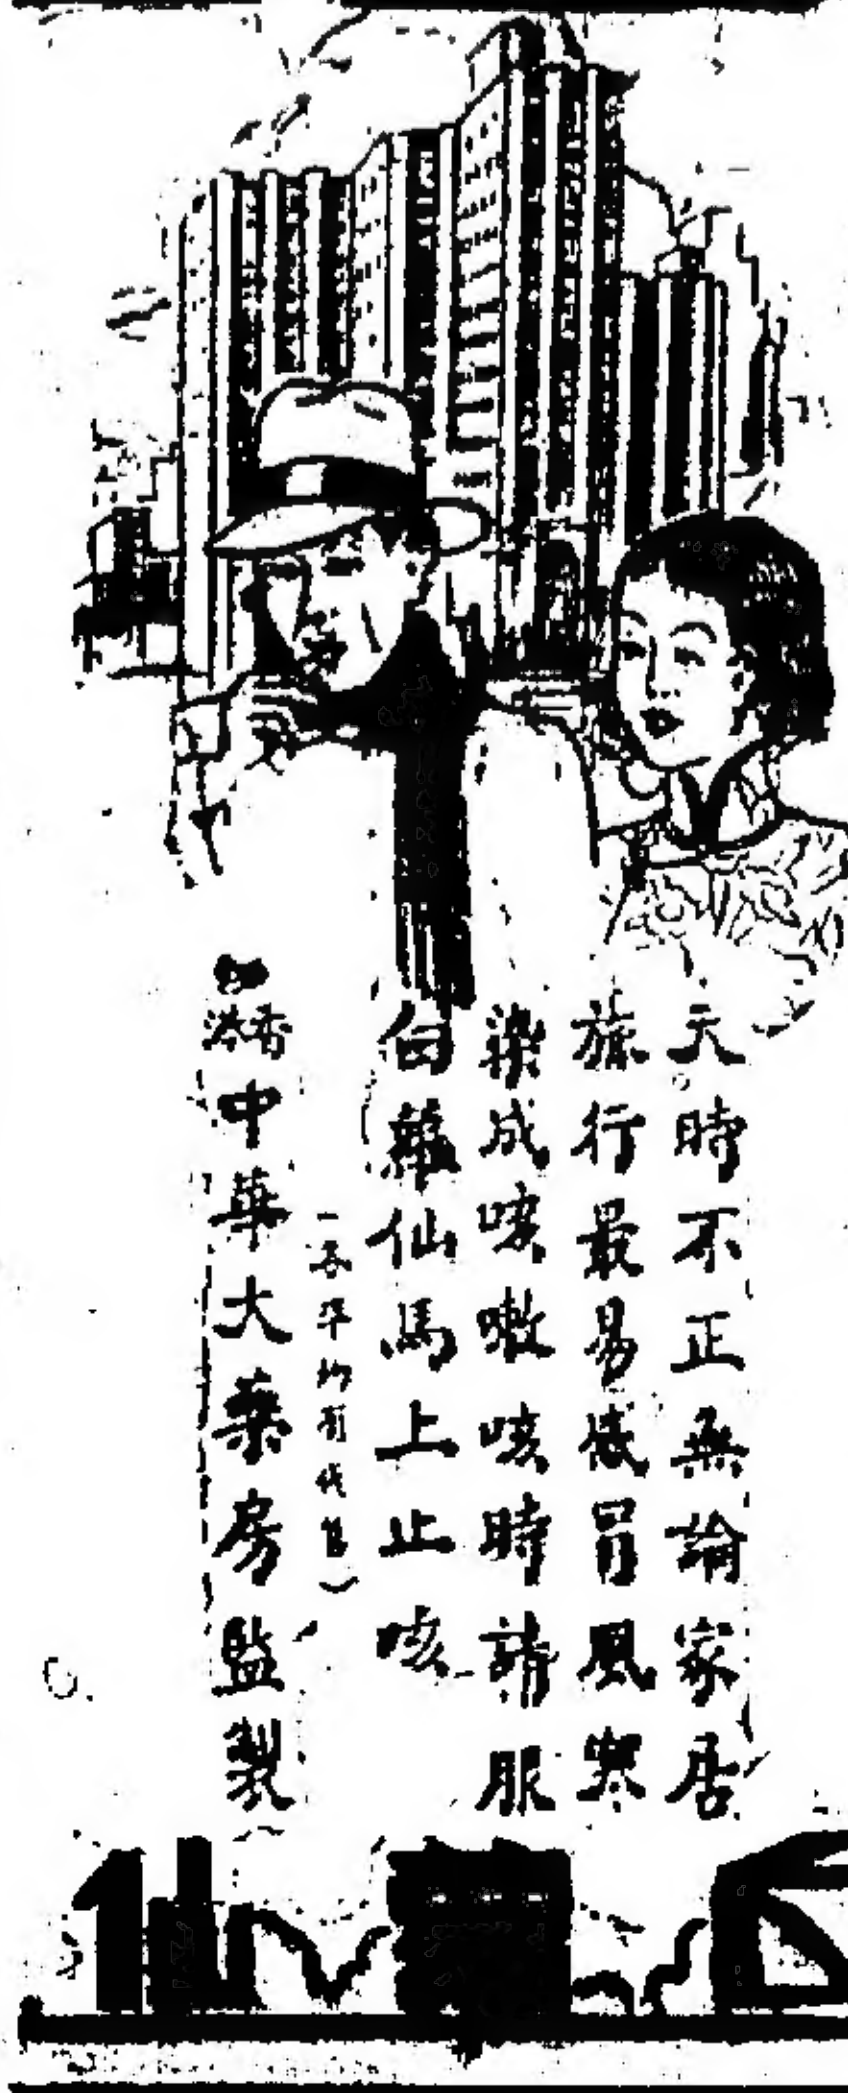 天時不正無論家居
旅行最易感冒風寒
染成咳嗽咳時請服
白蘿仙馬上止咳
均有代售）
香港中華大藥房監製
白蘿仙